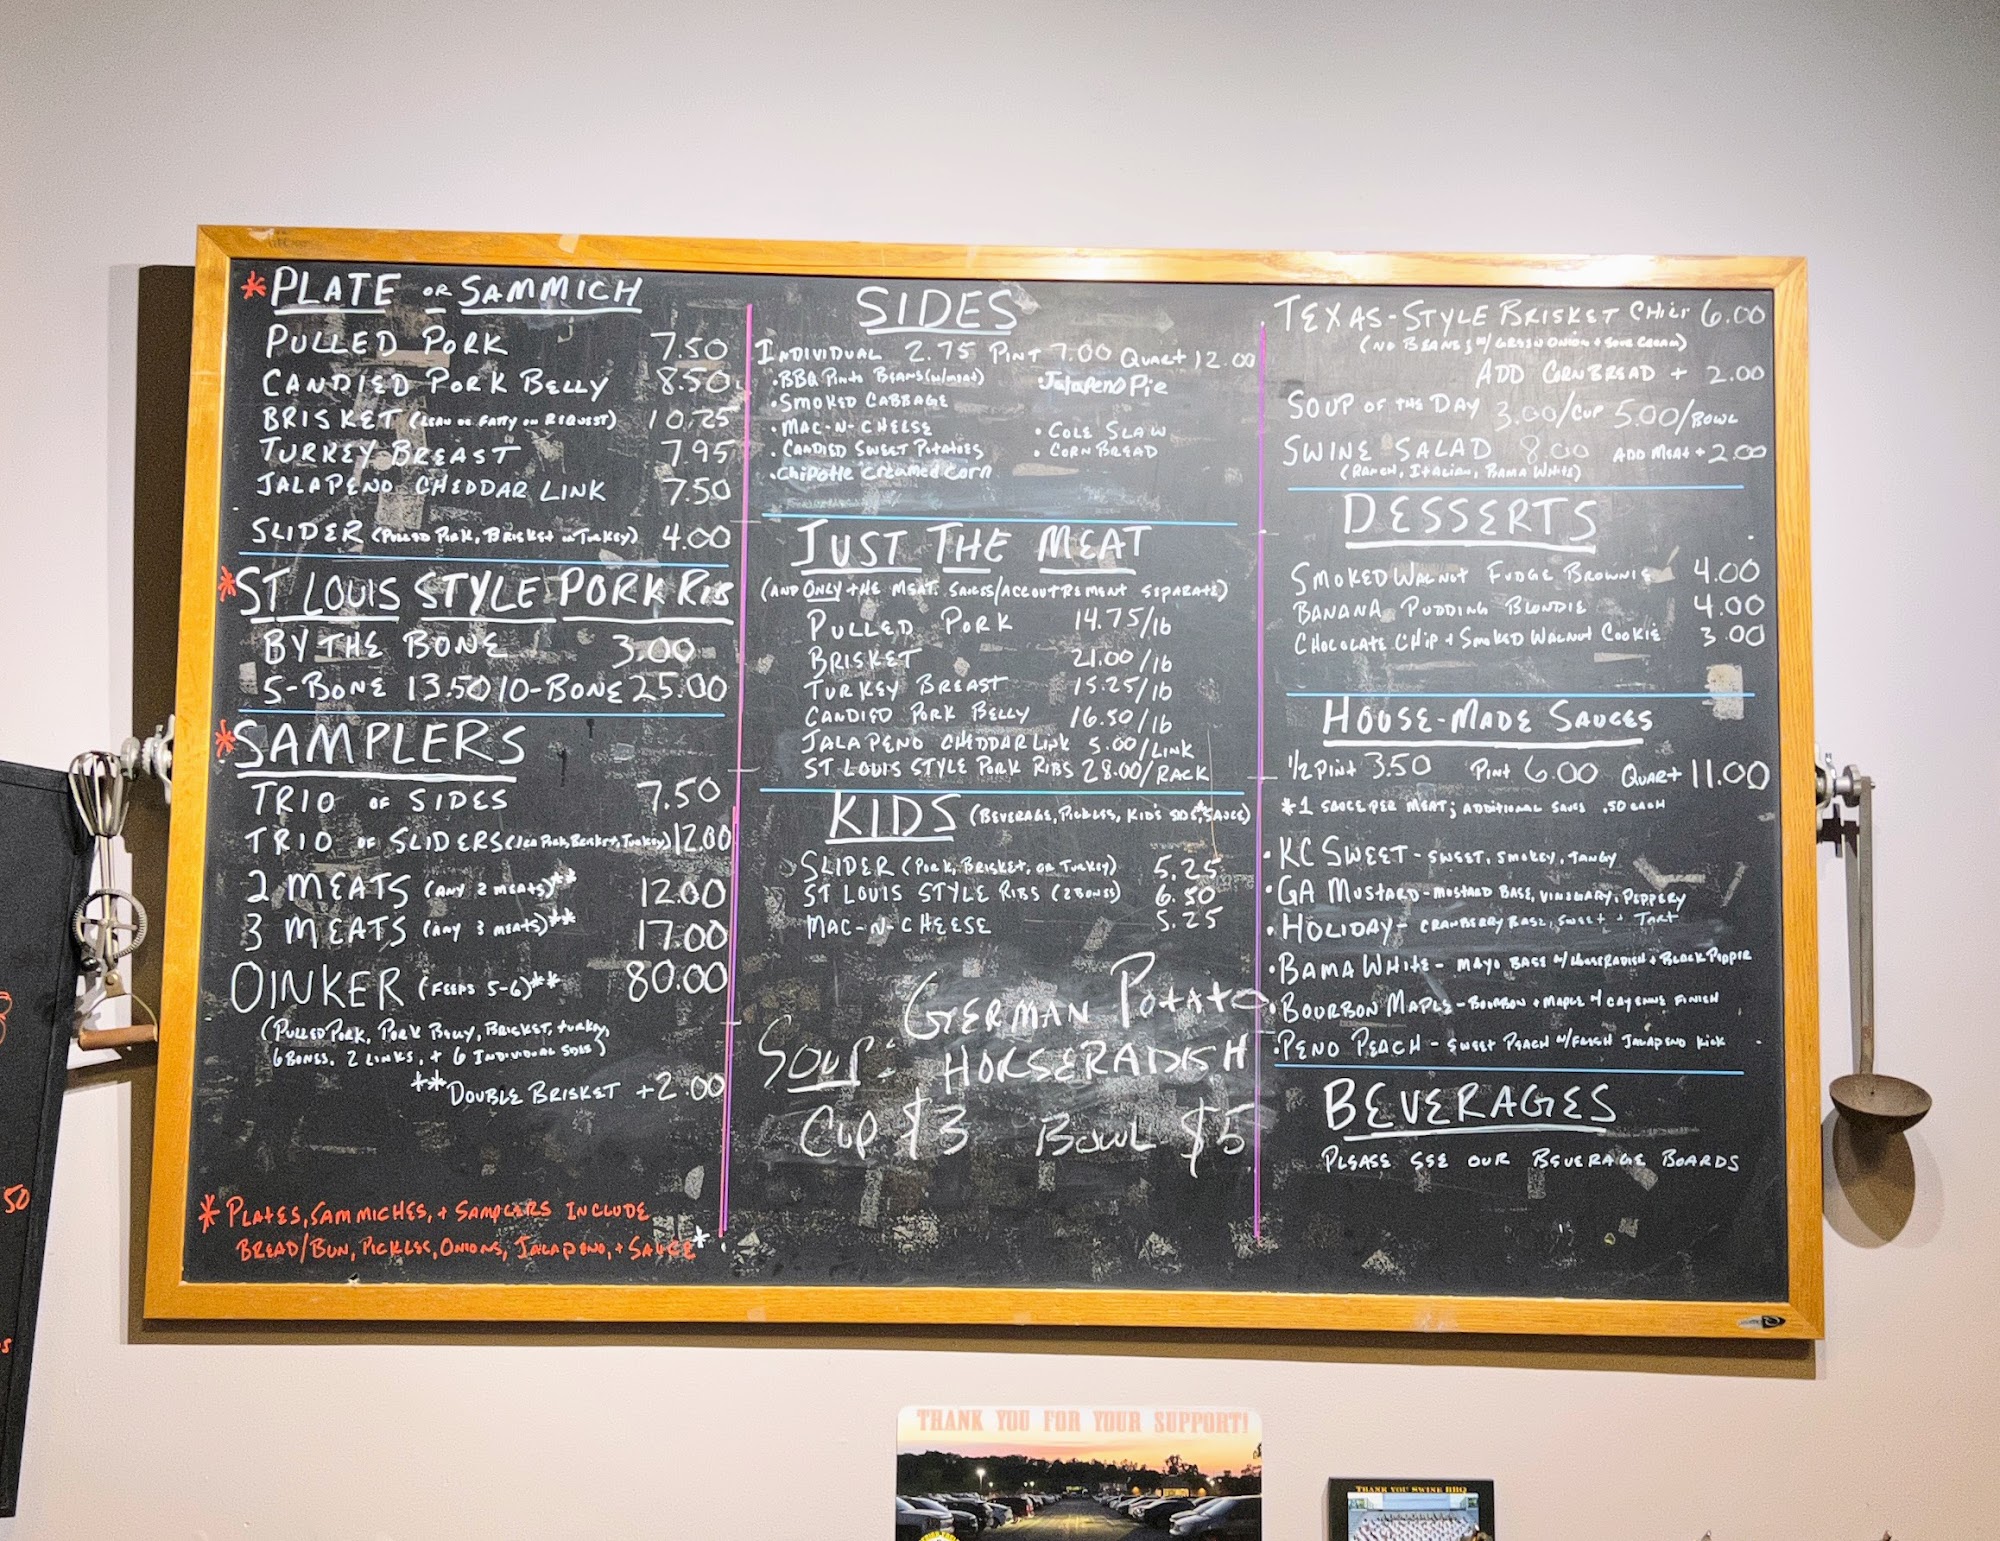 *PLATE OR SAMMICH
PULLED PORK 7.50
CANDIED PORK BELLY 8.50
BRISKET (LEAN OR FATTY ON REQUEST) 10.25
TURKEY BREAST 7.95
JALAPENO CHEDDAR LINK 7.50
SLIDER (PULLED PORK, BRISKET OR TURKEY) 4.00
*ST LOUIS STYLE PORK RIB
BY THE BONE 3.00
5-BONE 13.50 10-BONE 25.00
*SAMPLERS
TRIO OF SIDES 7.50
TRIO OF SLIDERS (1 EA PORK, BRISKET, TURKEY) 12.00
2 MEATS (ANY 2 MEATS)** 12.00
3 MEATS (ANY 3 MEATS)** 17.00
OINKER (FEEDS 5-6)** 80.00
(PULLED PORK, PORK BELLY, BRISKET, TURKEY,
6 BONES, 2 LINKS, + 6 INDIVIDUAL SIDES)
**DOUBLE BRISKET +2.00
*PLATES, SAMMICHES, + SAMPLERS INCLUDE
BREAD/BUN, PICKLES, ONIONS, JALAPENO, + SAUCE*
SIDES
INDIVIDUAL 2.75 PINT 7.00 QUART 12.00
• BBQ PINTO BEANS (W/MEAT) • Jalapeno Pie
• SMOKED CABBAGE
• MAC-N-CHEESE • COLE SLAW
• CANDIED SWEET POTATOES • CORNBREAD
• Chipotle Creamed Corn
JUST THE MEAT
(AND ONLY THE MEAT. SAUCES/ACCOUTREMENT SEPARATE)
PULLED PORK 14.75/lb
BRISKET 21.00/lb
TURKEY BREAST 15.25/lb
CANDIED PORK BELLY 16.50/lb
JALAPENO CHEDDAR LINK 5.00/LINK
ST LOUIS STYLE PORK RIBS 28.00/RACK
KIDS (BEVERAGE, PICKLES, KID'S SIDE, *SAUCE)
SLIDER (PORK, BRISKET, OR TURKEY) 5.25
ST LOUIS STYLE RIBS (2 BONES) 6.50
MAC-N-CHEESE 5.25
GERMAN POTATO
SOUP: HORSERADISH
CUP $3 BOWL $5
TEXAS-STYLE BRISKET CHILI 6.00
(NO BEANS; W/ GREEN ONION + SOUR CREAM)
ADD CORNBREAD + 2.00
SOUP OF THE DAY 3.00/CUP 5.00/BOWL
SWINE SALAD 8.00 ADD MEAT + 2.00
(RANCH, ITALIAN, BAMA WHITE)
DESSERTS
SMOKED WALNUT FUDGE BROWNIE 4.00
BANANA PUDDING BLONDIE 4.00
CHOCOLATE CHIP + SMOKED WALNUT COOKIE 3.00
HOUSE-MADE SAUCES
1/2 PINT 3.50 PINT 6.00 QUART 11.00
*1 SAUCE PER MEAT; ADDITIONAL SAUCE .50 EACH
• KC SWEET - SWEET, SMOKEY, TANGY
• GA MUSTARD - MUSTARD BASE, VINEGARY, PEPPERY
• HOLIDAY - CRANBERRY BASE, SWEET + TART
• BAMA WHITE - MAYO BASE W/ HORSERADISH + BLACK PEPPER
• BOURBON MAPLE - BOURBON + MAPLE W/ CAYENNE FINISH
• PENO PEACH - SWEET PEACH W/ FRESH JALAPENO KICK
BEVERAGES
PLEASE SEE OUR BEVERAGE BOARDS
50
THANK YOU FOR YOUR SUPPORT!
THANK YOU SWINE BBQ